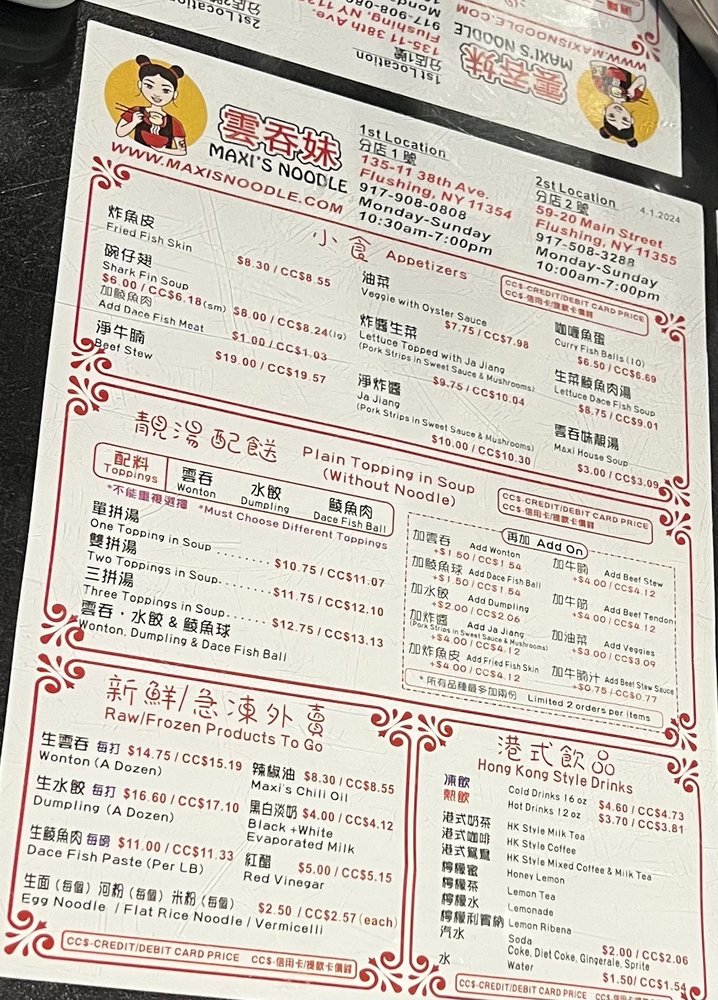 1st Location
分店1號
135-11 38th Ave.
Flushing, NY 11354
雲吞妹
MAXI'S NOODLE
WWW.MAXISNOODLE.COM
雲吞妹
MAXI'S NOODLE
WWW.MAXISNOODLE.COM
1st Location
分店1號
135-11 38th Ave.
Flushing, NY 11354
917-908-0808
Monday-Sunday
10:30am-7:00pm
2st Location
分店2號
4.1.2024
59-20 Main Street
Flushing, NY 11355
917-508-3288
Monday-Sunday
10:00am-7:00pm
小食 Appetizers
CC$-CREDIT/DEBIT CARD PRICE
CC$-信用卡/提款卡價錢
炸魚皮
Fried Fish Skin
$8.30/CC$8.55
碗仔翅
Shark Fin Soup
$6.00/CC$6.18(sm) $8.00/CC$8.24(lg)
加鯪魚肉
Add Dace Fish Meat
$1.00/CC$1.03
淨牛腩
Beef Stew
$19.00/CC$19.57
油菜
Veggie with Oyster Sauce
$7.75/CC$7.98
炸醬生菜
Lettuce Topped with Ja Jiang
(Pork Strips in Sweet Sauce & Mushrooms)
$9.75/CC$10.04
淨炸醬
Ja Jiang
(Pork Strips in Sweet Sauce & Mushrooms)
$10.00/CC$10.30
咖喱魚蛋
Curry Fish Balls (10)
$6.50/CC$6.69
生菜鯪魚肉湯
Lettuce Dace Fish Soup
$8.75/CC$9.01
雲吞妹靚湯
Maxi House Soup
$3.00/CC$3.09
靚湯配餸 Plain Topping in Soup
(Without Noodle)
CC$-CREDIT/DEBIT CARD PRICE
CC$-信用卡/提款卡價錢
配料
Toppings
雲吞
Wonton
水餃
Dumpling
鯪魚肉
Dace Fish Ball
*不能重複選擇 *Must Choose Different Toppings
單拼湯
One Topping in Soup ........ $10.75/CC$11.07
雙拼湯
Two Toppings in Soup........ $11.75/CC$12.10
三拼湯
Three Toppings in Soup...... $12.75/CC$13.13
雲吞．水餃 & 鯪魚球
Wonton, Dumpling & Dace Fish Ball
再加 Add On
加雲吞 Add Wonton
+$1.50/CC$1.54
加鯪魚球 Add Dace Fish Ball
+$1.50/CC$1.54
加水餃 Add Dumpling
+$2.00/CC$2.06
加炸醬 Add Ja Jiang
(Pork Strips in Sweet Sauce & Mushrooms)
+$4.00/CC$4.12
加炸魚皮 Add Fried Fish Skin
+$4.00/CC$4.12
加牛腩 Add Beef Stew
+$4.00/CC$4.12
加牛筋 Add Beef Tendon
+$4.00/CC$4.12
加油菜 Add Veggies
+$3.00/CC$3.09
加牛腩汁 Add Beef Stew Sauce
+$0.75/CC$0.77
*所有品種最多加兩份 Limited 2 orders per items
新鮮/急凍外賣
Raw/Frozen Products To Go
生雲吞 每打 $14.75/CC$15.19
Wonton (A Dozen)
生水餃 每打 $16.60/CC$17.10
Dumpling (A Dozen)
生鯪魚肉 每磅 $11.00/CC$11.33
Dace Fish Paste (Per LB)
辣椒油 $8.30/CC$8.55
Maxi's Chili Oil
黑白淡奶 $4.00/CC$4.12
Black +White
Evaporated Milk
紅醋 $5.00/CC$5.15
Red Vinegar
生面(每個) 河粉(每個) 米粉(每個)
Egg Noodle / Flat Rice Noodle / Vermicelli $2.50/CC$2.57(each)
CC$-CREDIT/DEBIT CARD PRICE CC$-信用卡/提款卡價錢
港式飲品
Hong Kong Style Drinks
凍飲 Cold Drinks 16oz $4.60/CC$4.73
熱飲 Hot Drinks 12oz $3.70/CC$3.81
港式奶茶 HK Style Milk Tea
港式咖啡 HK Style Coffee
港式鴛鴦 HK Style Mixed Coffee & Milk Tea
檸檬蜜 Honey Lemon
檸檬茶 Lemon Tea
檸檬水 Lemonade
檸檬利賓納 Lemon Ribena
汽水 Soda $2.00/CC$2.06
Coke, Diet Coke, Gingerale, Sprite
水 Water $1.50/CC$1.54
CC$-CREDIT/DEBIT CARD PRICE